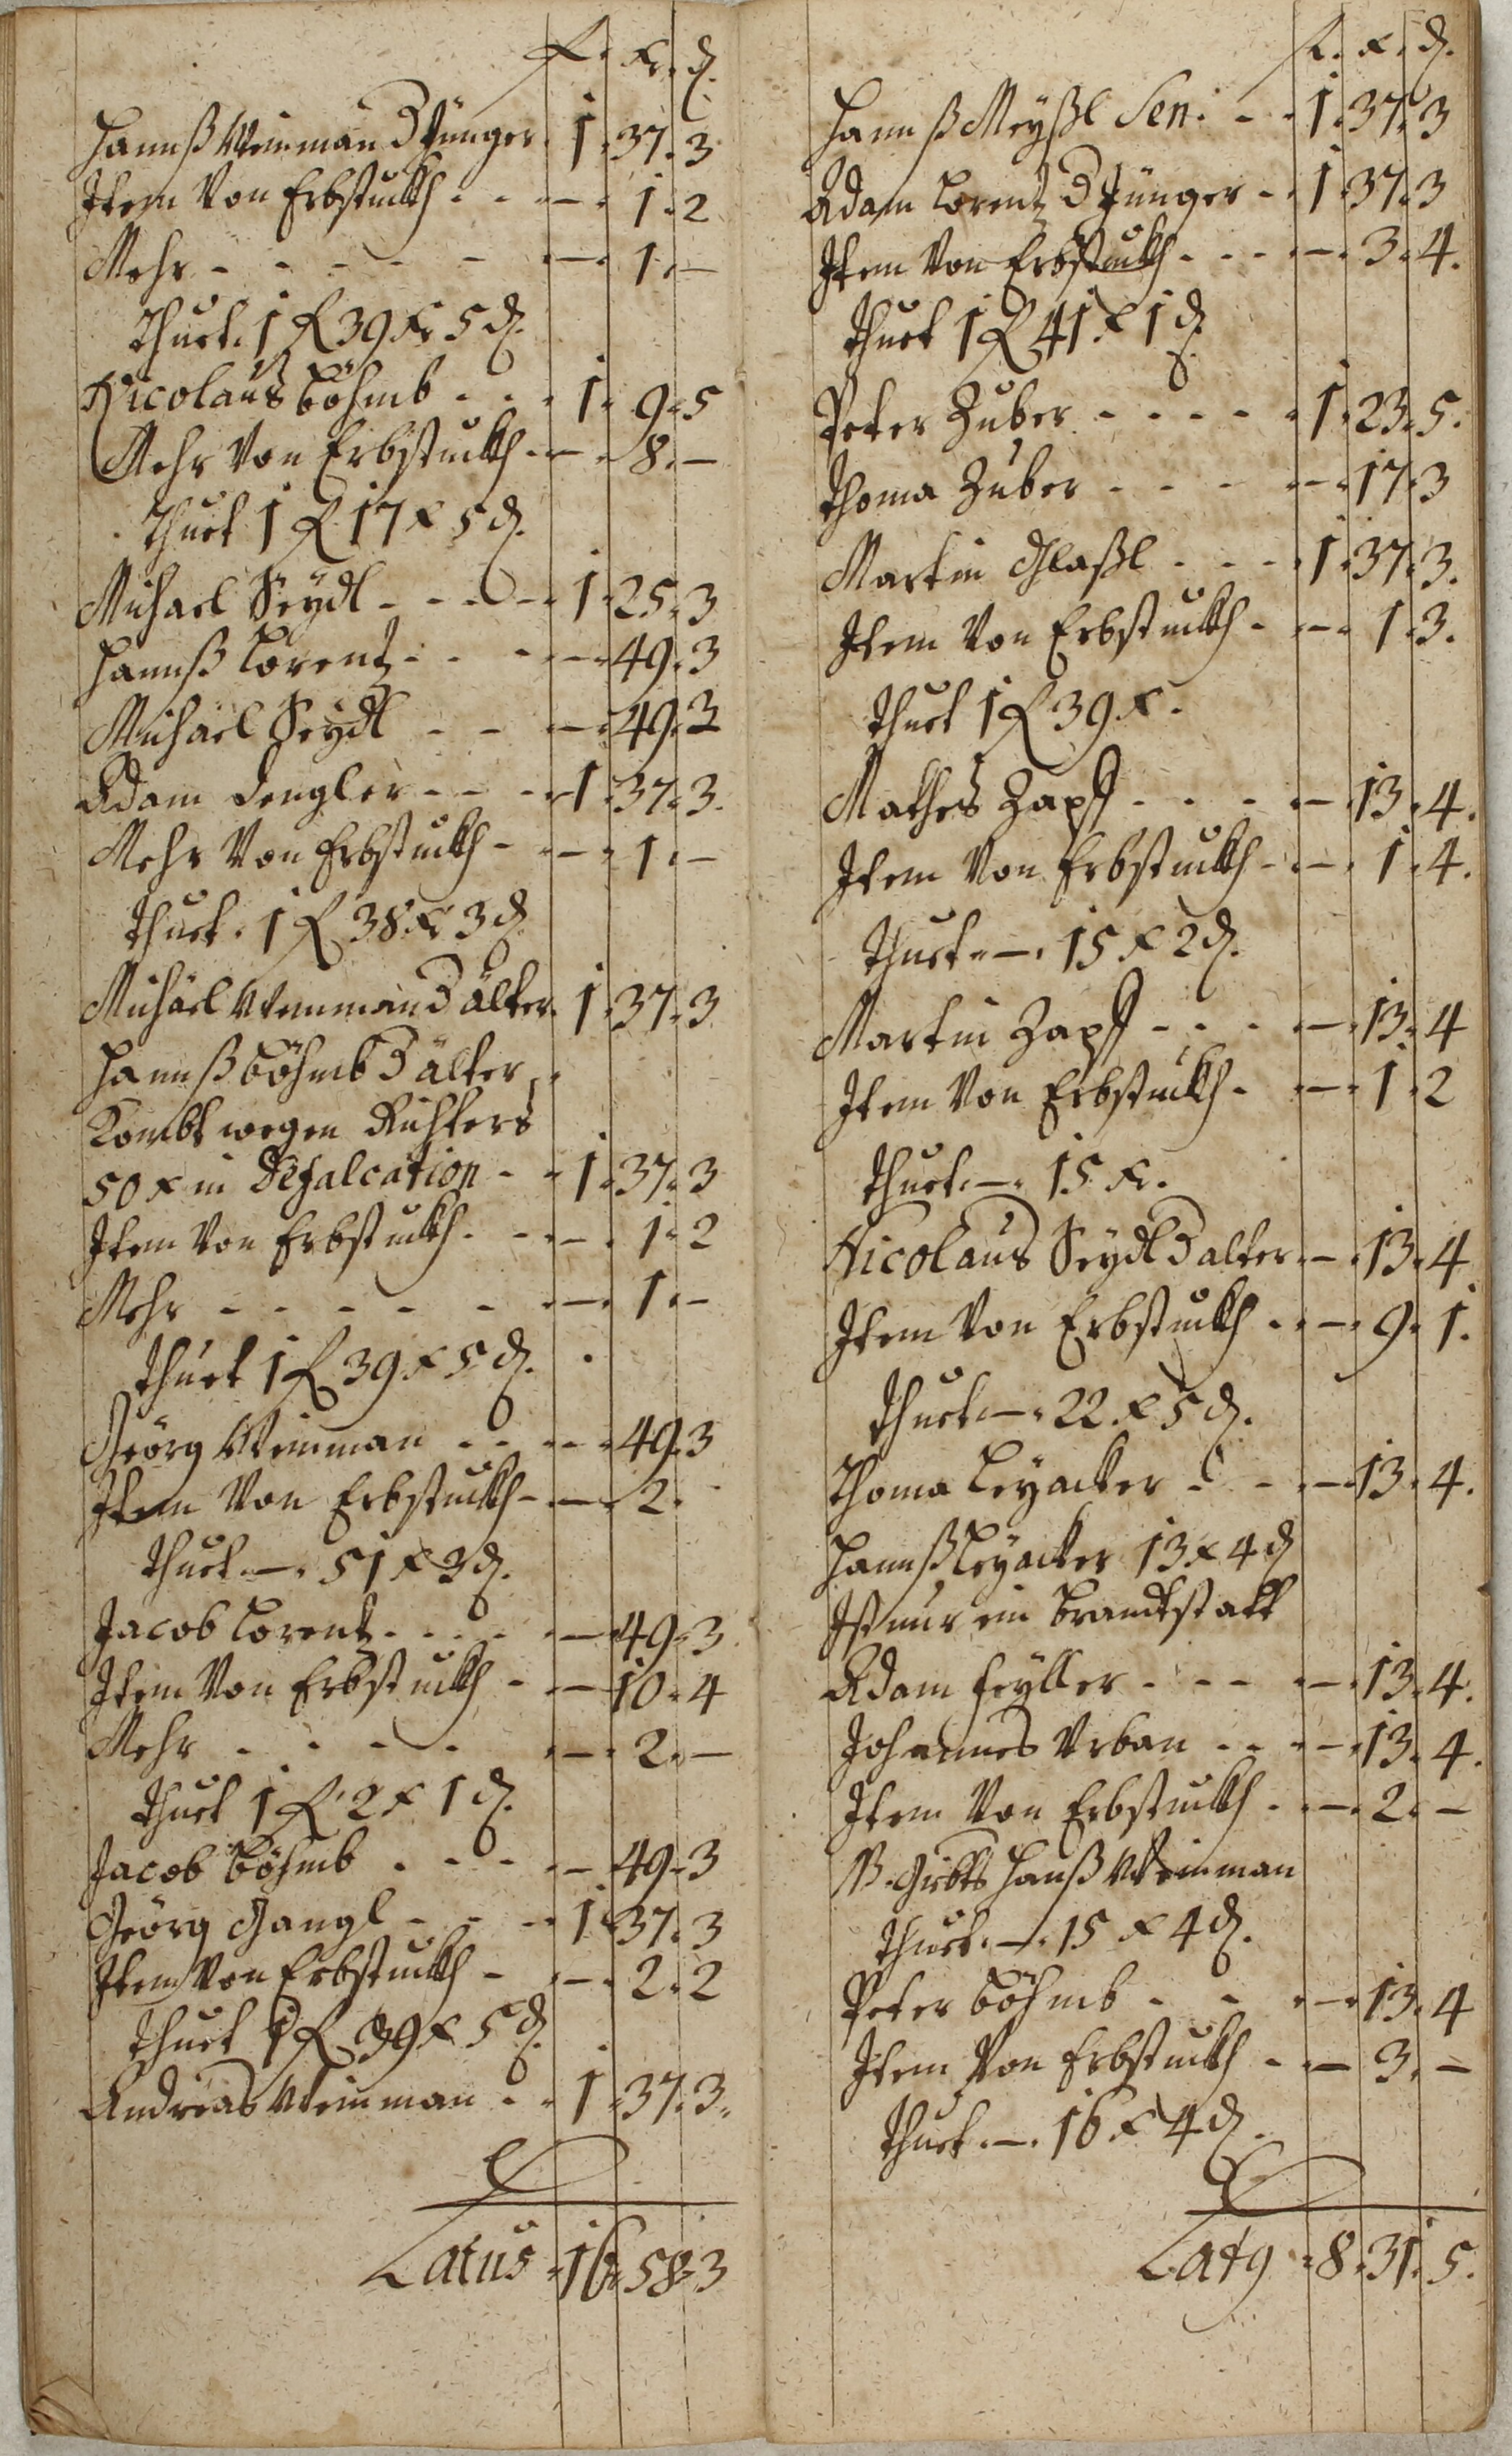 f. kr. d.
Hannß Weinman D Jünger. 1. 37. 3
Item Von Erbstuckh. - - -. 1. 2
Mehr - - - - - -. 1. -
Thuet. 1 f 39 kr 5 d.
Nicolauß Böhmb - - 1. 9. 5
Mehr Von Erbstuckh - -. 8. -
Thuet 1 f 17 x 5 d.
Michael Seydl - - - - 1. 25. 3
Hannß Lorentz - - - -. 49. 3
Michael Seydl - - -. 49. 3
Adam Dengler - - - 1. 37. 3.
Mehr Von Erbstuckh - -. 1. -
Thuet. 1 f 38 kr 3 d.
Michael Weinman D älter. 1. 37. 3
Hannß Böhmb D älter,
Kombt wegen Richters
50 x in Defalcation - - 1. 37. 3
Item Von Erbstuckh. - -. 1. 2
Mehr - - - - - -. 1. -
Thuet 1 f 39 x 5 d.
Geörg Weinman - - - -. 49. 3
Item Von Erbstuckh - -. 2.
Thuet -. 51 x 3 d.
Jacob Lorentz. - - - -. 49. 3
Item Von Erbstuckh - - 10. 4
Mehr - - - - -. 2. -
Thuet 1 f 2 x 1 d.
Jacob Böhmb. - - - - 49. 3
Geörg Gangl - - - 1. 37. 3
Item Von Erbstuckh - -. 2. 2
Thuet 1 f 39 x 5 d.
Andreas Weinman - - 1. 37. 3.
Latus. 16. 58. 3
f. x. d.
Hannß Meyßl Sen. - - 1. 37. 3
Adam Lorentz D Jünger - 1. 37. 3
Item Von Erbstuckh. - - -. 3. 4.
Thuet 1 f 41 x 1 d.
Peter Zuber - - - - - 1. 23. 5.
Thoma Zuber - - - -. 17. 3
Martin Glaßl - - - 1. 37. 3.
Item Von Erbstuckh - -. 1. 3.
Thuet 1 f 39 x.
Mathes Zapf - - - -. 13. 4.
Item Von Erbstuckh - -. 1. 4.
Thuet -. 15 x 2 d.
Martin Zapf - - - -. 13. 4
Item Von Erbstuckh - -. 1. 2
Thuet. -. 15 kr.
Nicolaus Seydl D alter. -. 13. 4
Item Von Erbstuckh. -. 9. 1.
Thuet -. 22 x 5 d.
Thoma Leyacker - - -. 13. 4.
Hannß Leyacker 13 x 4 d
Ist nur ein Brandtstatt
Adam Feyller - - - -. 13. 4.
Johannes Urban - - -. 13. 4.
Item Von Erbstuckh. -. 2. -
NB. Gibts Hanß Weinman
Thuet. -. 15 x 4 d.
Peter Böhmb - - -. 13. 4
Item Von Erbstuckh - - 3. -
Thuet. -. 16 x 4 d.
Lat9. 8. 31. 5.